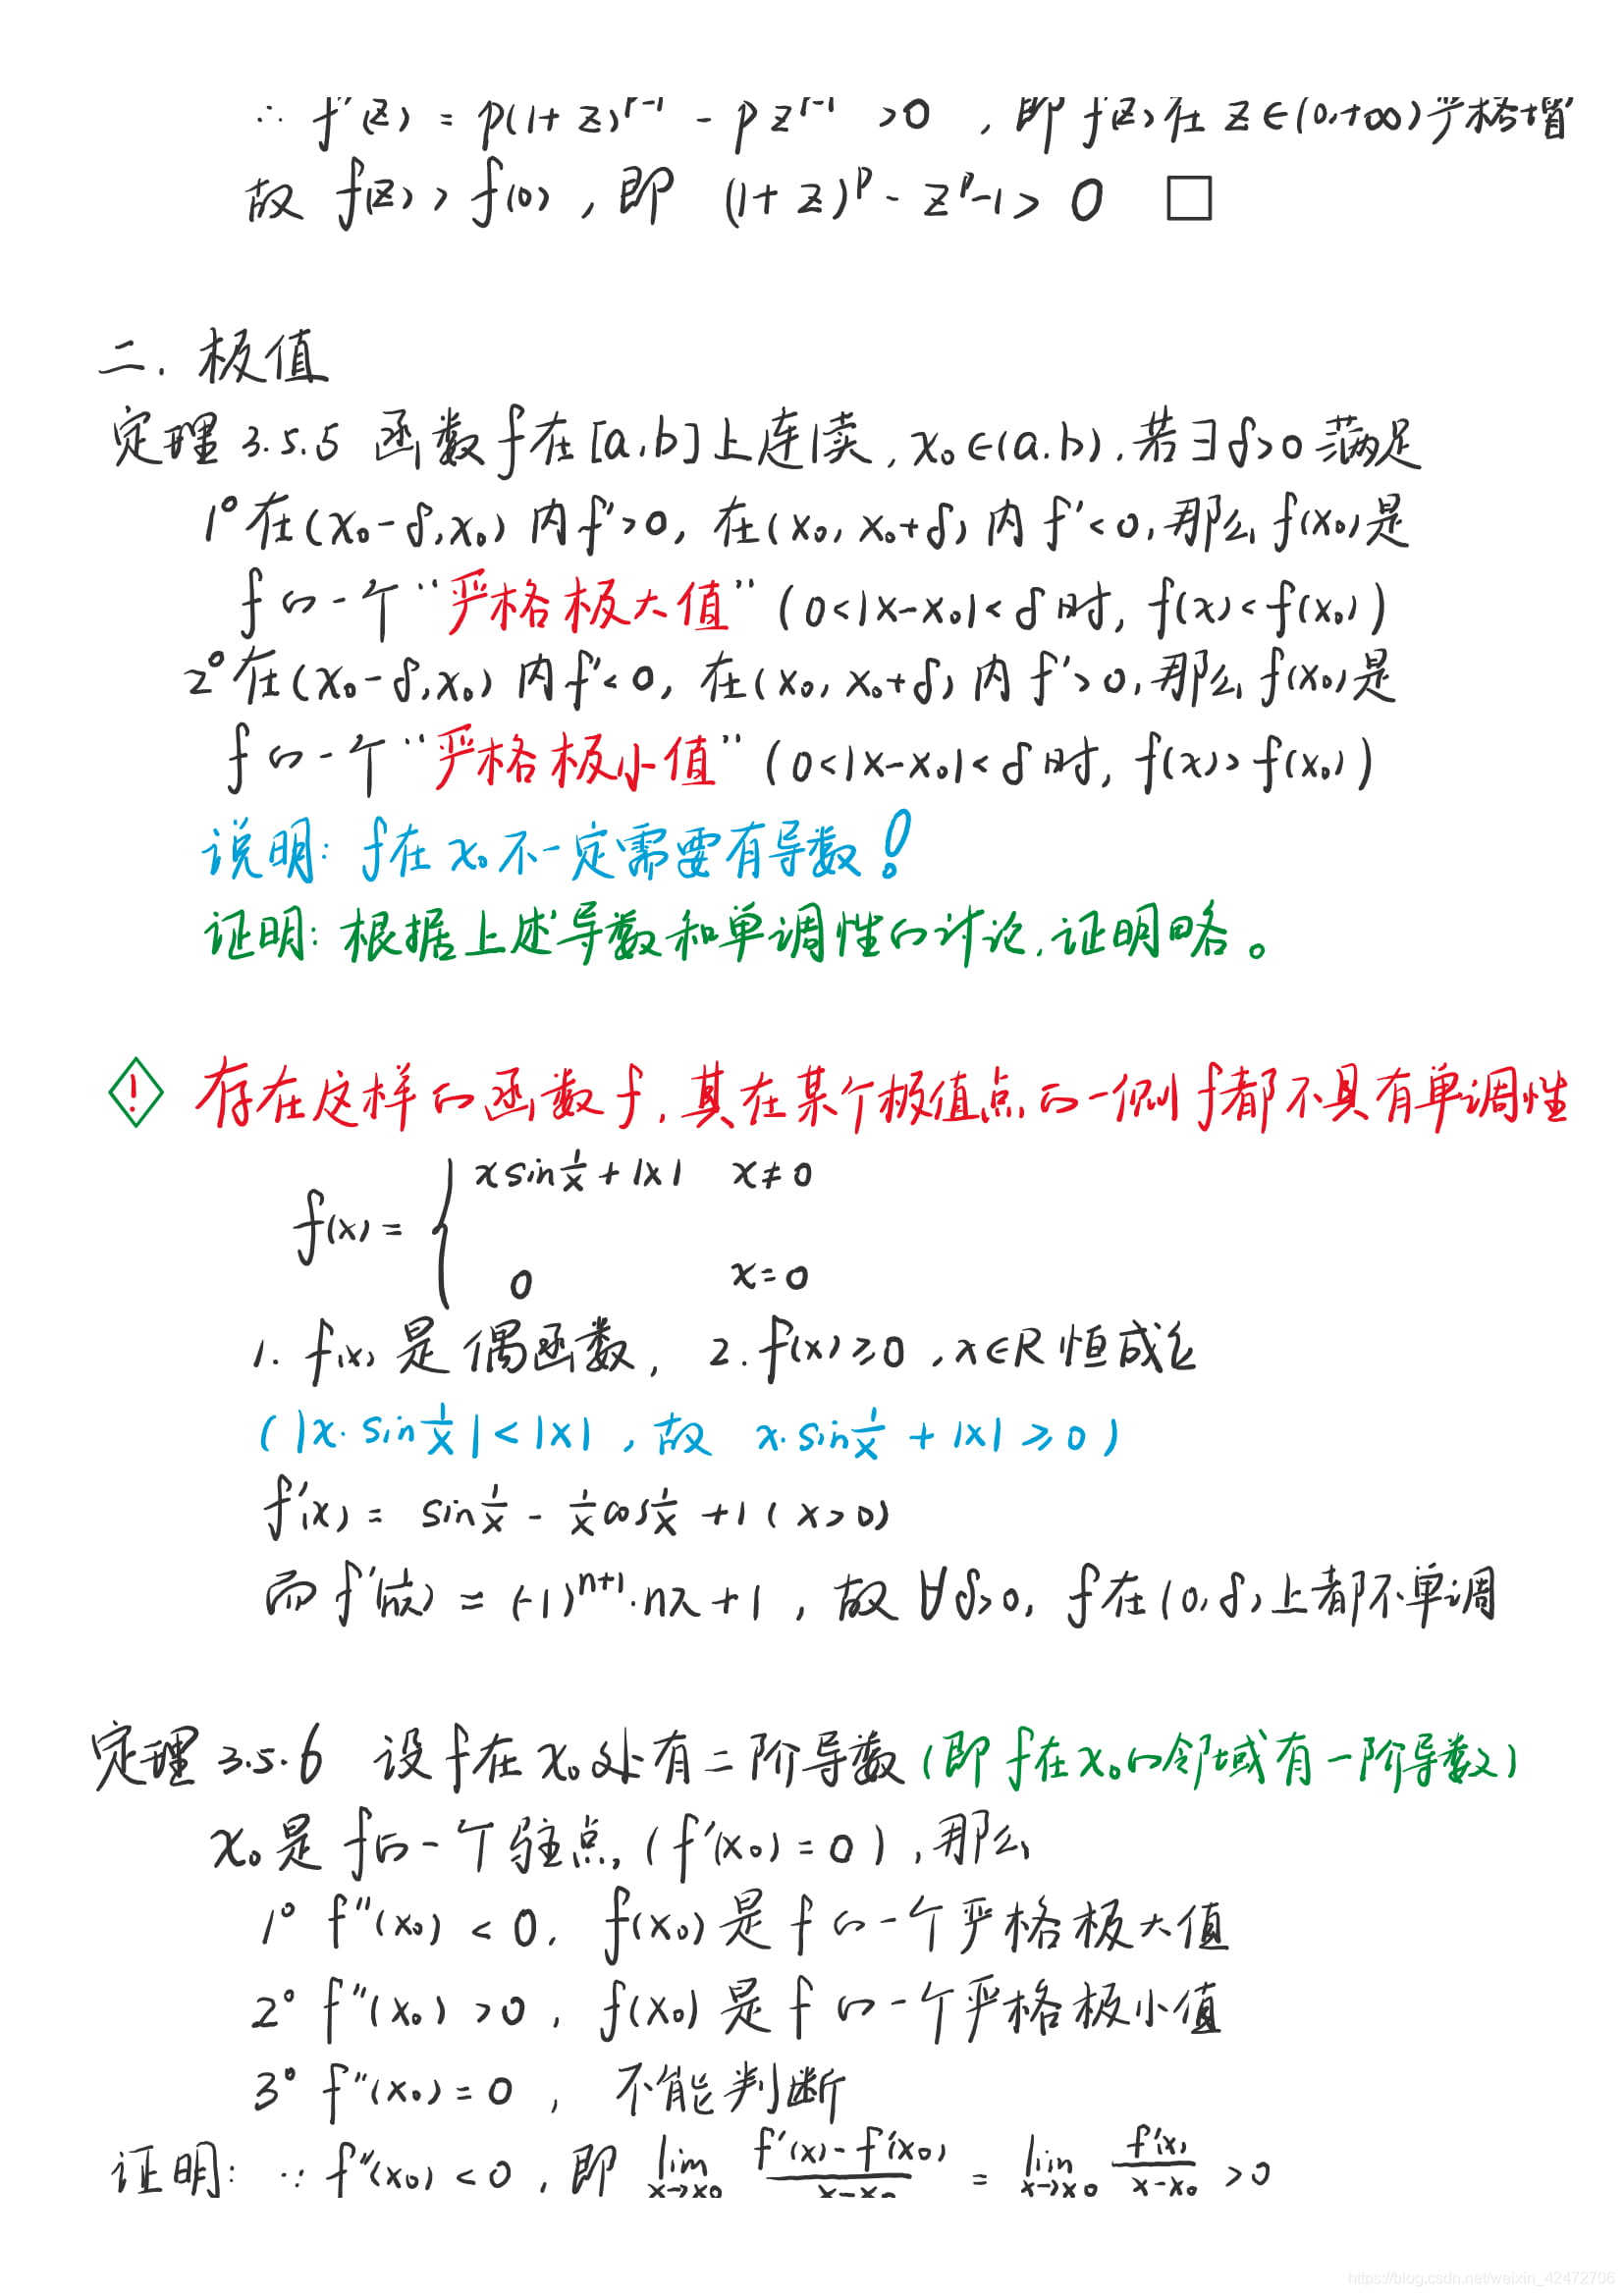 ∴ f'(z) = p(1+z)^{p-1} - p z^{p-1} >0 ,即 f(z)在 z∈(0,+∞)严格增
故 f(z) > f(0) ,即 (1+z)^p - z^p -1 > 0 □
二. 极值
定理 3.5.5 函数 f 在[a,b]上连续,x₀∈(a.b).若∃δ>0 满足
1° 在(x₀-δ,x₀) 内 f'>0, 在(x₀, x₀+δ) 内 f'<0,那么 f(x₀)是
f 的一个“严格极大值”(0<|x-x₀|<δ 时, f(x)<f(x₀))
2° 在(x₀-δ,x₀) 内 f'<0, 在(x₀, x₀+δ) 内 f'>0,那么 f(x₀)是
f 的一个“严格极小值”(0<|x-x₀|<δ 时, f(x)>f(x₀))
说明: f在 x₀不一定需要有导数!
证明: 根据上述导数和单调性的讨论,证明略。
! 存在这样的函数 f, 其在某个极值点的一侧 f都不具有单调性
f(x) = { x sin 1/x + |x| x≠0
0 x=0
1. f(x) 是偶函数, 2. f(x) ≥0 ,x∈R 恒成立
(|x·sin 1/x| < |x| ,故 x·sin 1/x + |x| ≥ 0)
f'(x) = sin 1/x - 1/x cos 1/x +1 (x>0)
而 f'(1/nπ) = (-1)^{n+1}·nπ+1 , 故 ∀δ>0, f在(0,δ)上都不单调
定理 3.5.6 设 f在 x₀处有二阶导数(即 f在 x₀的邻域有一阶导数)
x₀是 f的一个驻点, (f'(x₀)=0) ,那么
1° f''(x₀) < 0, f(x₀)是 f 的一个严格极大值
2° f''(x₀) >0 , f(x₀) 是 f 的一个严格极小值
3° f''(x₀)=0 , 不能判断
证明: ∵ f''(x₀) <0 ,即 lim_{x→x₀} (f'(x)-f'(x₀))/(x-x₀) = lim_{x→x₀} f'(x)/(x-x₀) >0
https://blog.csdn.net/weixin_42472706